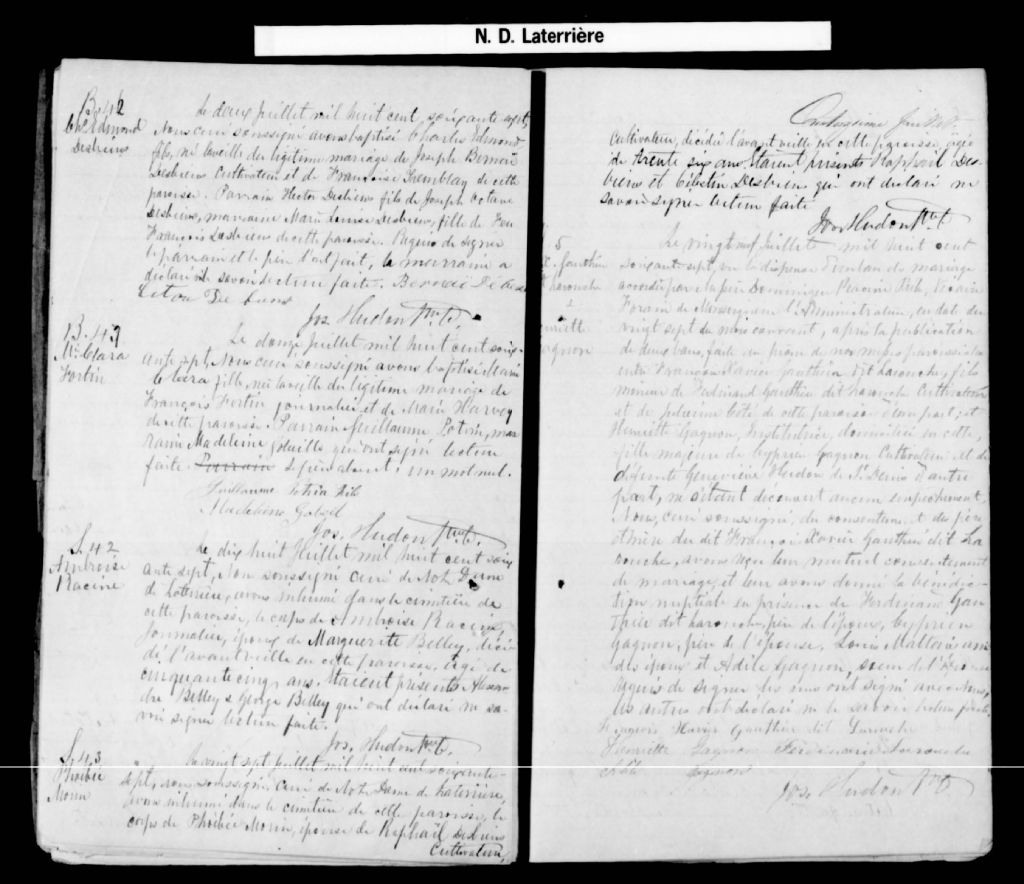 N. D. Laterrière
B. 42
Chs Edmond
Desbiens
Le deux Juillet mil huit cent soixante sept,
Nous curé soussigné avons baptisé Charles Edmond,
fils, né la veille du légitime mariage de Joseph
Desbiens Cultivateur et de Françoise Tremblay de cette
paroisse. Parrain Hector Desbiens fils de Joseph Octave
Desbiens, marraine Marie Louise Desbiens, fille de feu
François Desbiens de cette paroisse. Requis de signer
le parrain et le père l'ont fait, la marraine a
déclaré ne savoir lecture faite.
Jos. Hudon Ptre
B. 43
Me Clara
Fortin
Le douze Juillet mil huit cent soix-
ante sept, Nous curé soussigné avons baptisé Marie
Clara fille, née la veille du légitime mariage de
François Fortin journalier et de Marie Harvey
de cette paroisse. Parrain Guillaume Potvin, mar
raine Madeleine qui ont signé lecture
faite. Parrain le père absent: un mot nul.
Guillaume Potvin fils
Madeleine
Jos. Hudon Ptre.
S. 42
Ambroise
Racine
Le dix huit Juillet mil huit cent soix
ante sept, Nous soussigné curé de Notre Dame
de Laterrière, avons inhumé dans le cimetière de
cette paroisse, le corps de Ambroise Racine
Journalier, époux de Marguerite Belley, décé
dé l'avant veille en cette paroisse, âgé de
cinquante cinq ans. Etaient présents Alexan
dre Belley & George Belley qui ont déclaré ne sa-
voir signer lecture faite.
Jos. Hudon Ptre.
S. 43
Phoebée
Morin
Le vingt sept Juillet mil huit cent soixante-
sept, nous soussigné, Curé de Notre Dame de Laterrière,
avons inhumé dans le cimetière de cette paroisse, le
corps de Phoebée Morin, épouse de Raphaël Desbiens
Cultivateur,
cultivateur, décédée l'avant veille en cette paroisse, âgée
de trente six ans. Etaient présents Raphaël Des-
biens et Célestin Desbiens qui ont déclaré ne
savoir signer lecture faite
Jos. Hudon Ptre
5
Gauthier
Larouche
&
Henriette
Gagnon
Le vingt neuf Juillet mil huit cent
soixante sept, vu la dispense d'un ban de mariage
accordée par le père Dominique Racine Ptre, Vicaire
Forain de Monseigneur l'Administrateur, en date du
vingt sept du mois courant, après la publication
de deux bans, faite au prône de nos messes paroissiales
entre François Xavier Gauthier dit Larouche, fils
mineur de Ferdinand Gauthier dit Larouche Cultivateur
et de Coté de cette paroisse d'une part; et
Henriette Gagnon, Institutrice, domiciliée en cette,
fille majeure de Cyprien Gagnon Cultivateur et de
défunte Geneviève Hudon de St Denis d'autre
part, ne s'étant découvert aucun empêchement,
Nous, curé soussigné, du consentement du père
& mère du dit François Xavier Gauthier dit La
rouche, avons reçu leur mutuel consentement
de mariage et leur avons donné la bénédic-
tion nuptiale en présence de Ferdinand Gau
thier dit Larouche, père de l'époux, Cyprien
Gagnon, père de l'épouse, Louis ami
de l'époux et Adèle Gagnon, soeur de l'épouse
Requis de signer les uns ont signé avec nous,
les autres ont déclaré ne le savoir lecture faite.
François Xavier Gauthier dit Larouche
Henriette Gagnon Ferdinand Larouche
Adèle Gagnon
Jos. Hudon Ptre